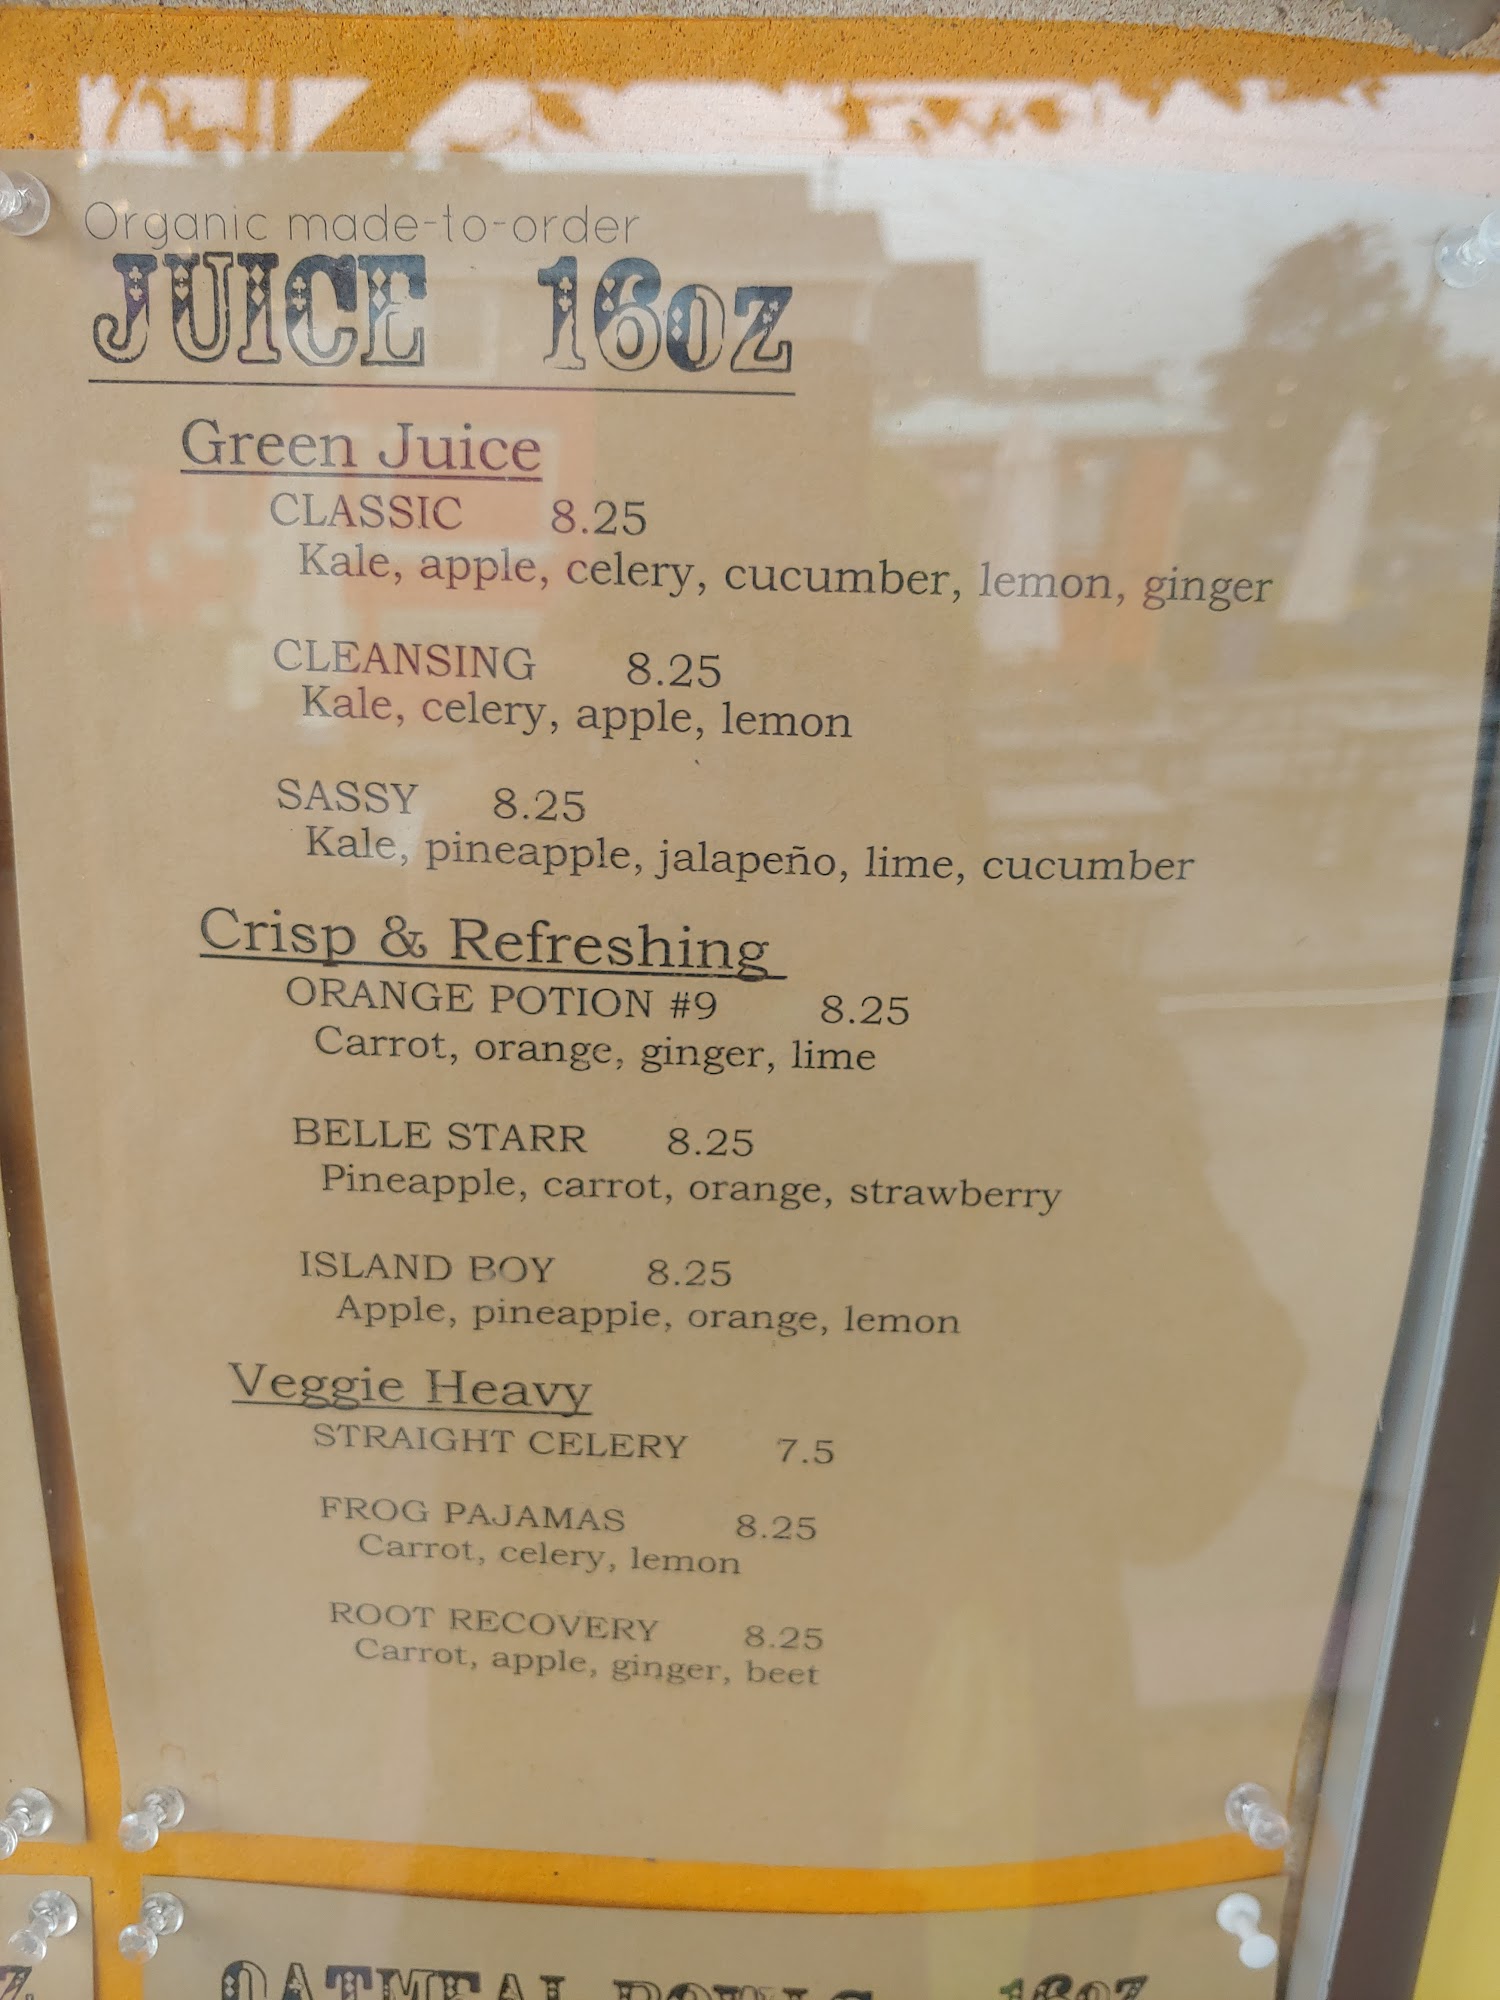 Organic made-to-order
JUICE 16oz
Green Juice
CLASSIC 8.25
Kale, apple, celery, cucumber, lemon, ginger
CLEANSING 8.25
Kale, celery, apple, lemon
SASSY 8.25
Kale, pineapple, jalapeño, lime, cucumber
Crisp & Refreshing
ORANGE POTION #9 8.25
Carrot, orange, ginger, lime
BELLE STARR 8.25
Pineapple, carrot, orange, strawberry
ISLAND BOY 8.25
Apple, pineapple, orange, lemon
Veggie Heavy
STRAIGHT CELERY 7.5
FROG PAJAMAS 8.25
Carrot, celery, lemon
ROOT RECOVERY 8.25
Carrot, apple, ginger, beet
OATMEAL BOWLS 16oz